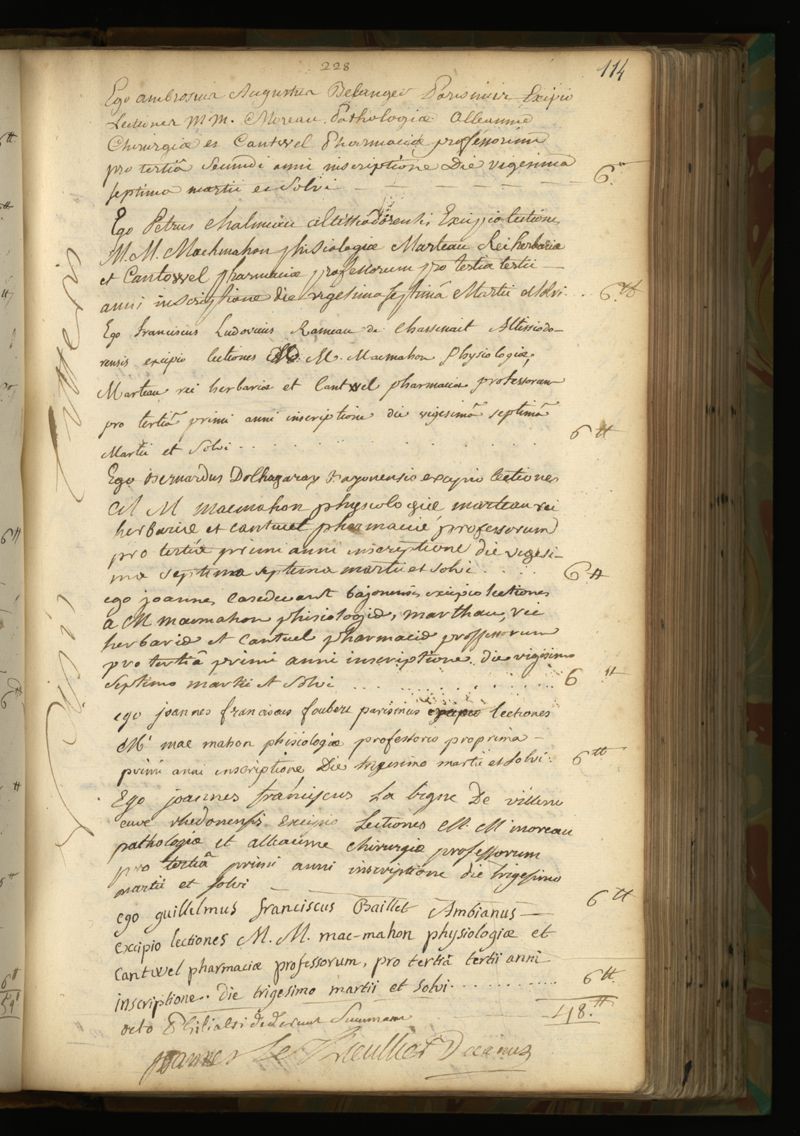 228
114
Ego ambrosius Augustus Belanger Parisinus Excipio
Lectiones MM. Moreau, Pathologiæ Alleaume
Chirurgiæ et Cantwel Pharmaciæ professorum
pro tertiâ Secundi anni inscriptione Die vigesima
septima martii et Solvi 6.tt
Ego Petrus Chalmeau altissiodorensis Excipio lectiones
M. M. Machmahon phisiologiæ Marteau Rei herbariæ
et Cantowel pharmaciæ professorum pro tertia tertii
anni inscriptione die vigesima septimâ Martii et solvi . . 6.tt
Ego franciscus Ludovicus Rameau de Altissiodo-
rensis excipio lectiones M. M. Macmahon Physiologiæ,
Marteau rei herbariæ et Cantwel pharmaciæ professorum
pro tertiâ primi anni inscriptione die vigesimâ septimâ
Martii et Solvi . . . 6 tt
Ego Bernardus Dolhagaray bayonensis excipio lectiones
M M macmahon physiologiæ marteau rei
herbariæ et cantuel pharmaciæ professorum
pro tertiâ primi anni inscriptione die vigesi-
ma septima septima martii et solvi . . . 6 tt
ego joannes bajonensis excipio lectiones
M macmahon phisiologiæ, marthau, rei
herbariæ et Cantuel pharmaciæ proffessorum
pro tertiâ primi anni inscriptione die vigesimo
septimo martii et solvi . . . 6 tt
ego joannes franciscus foubert parisinus excipio lectiones
M' mac mahon phisiologiæ professoris pro prima
primi anni inscriptione Die trigesimo martii et solvi. 6 tt
Ego joannes franciscus La bigne De villene
euve rhedonensis Excipio Lectiones M. M moreau
pathologiæ et alleaume chirurgiæ professorum
pro tertiâ primi anni inscriptione die trigesimo
martii et solvi 6 tt
ego guillelmus franciscus Baillet Ambianus
excipio lectiones M. M. mac-mahon physiologiæ et
Cantwel pharmaciæ professorum, pro tertiâ tertii anni
inscriptione.. die trigesimo martii et solvi . . . 6 tt.
octo Philiatri dederunt Summam 48.tt
Joannes Le Thieullier Decanus